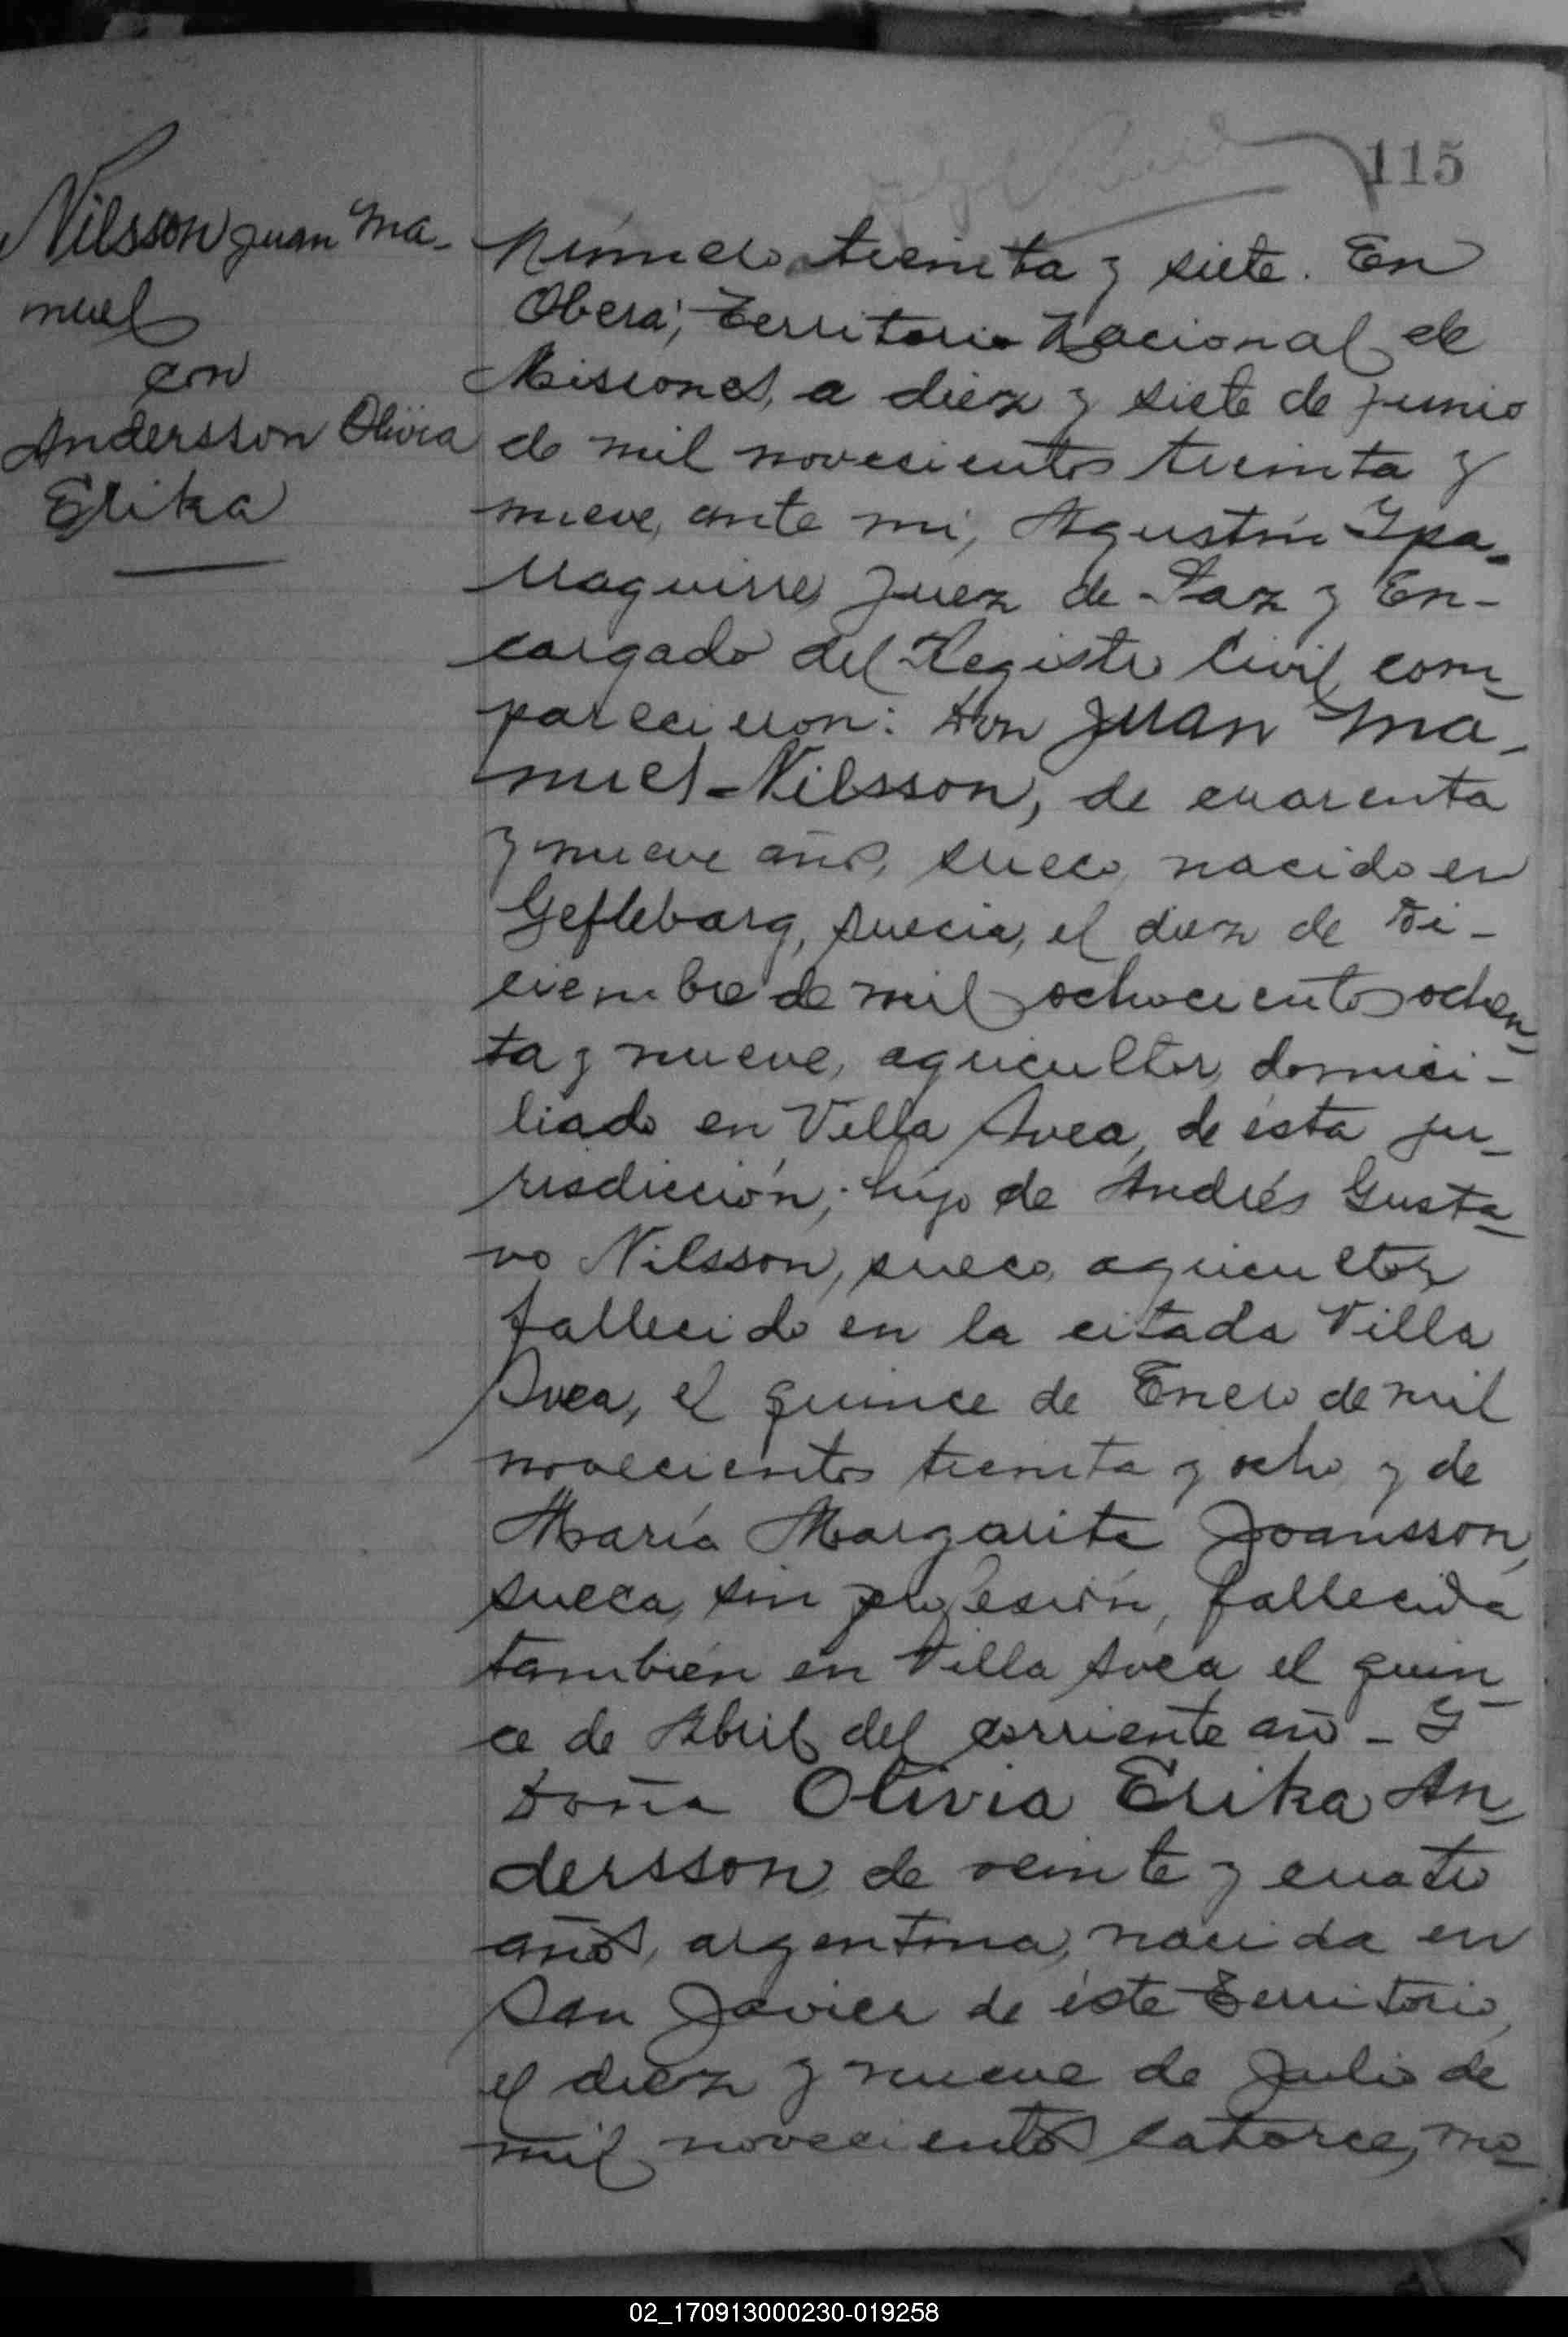 115
Nilsson Juan Ma-
nuel
con
Andersson Olivia
Erika
Número treinta y siete. En
Oberá, Territorio Nacional de
Misiones, a diez y siete de Junio
de mil novecientos treinta y
nueve, ante mi, Agustín Ypa-
rraguirre, Juez de Paz y En-
cargado del Registro Civil, com-
parecieron: Don Juan Ma-
nuel Nilsson, de cuarenta
y nueve años, sueco, nacido en
Gefleborg, Suecia, el diez de Di-
ciembre de mil ochocientos ochen-
ta y nueve, agricultor, domici-
liado en Villa Svea, de ésta ju-
risdicción; hijo de Andrés Gusta-
vo Nilsson, sueco, agricultor,
fallecido en la citada Villa
Svea, el quince de Enero de mil
novecientos treinta y ocho y de
María Margarita Joansson,
sueca, sin profesión, fallecida
también en Villa Svea el quin-
ce de Abril del corriente año - Y
Doña Olivia Erika An-
dersson, de veinte y cuatro
años, argentina, nacida en
San Javier de éste Territorio,
el diez y nueve de Julio de
mil novecientos catorce, mo-
02_170913000230-019258